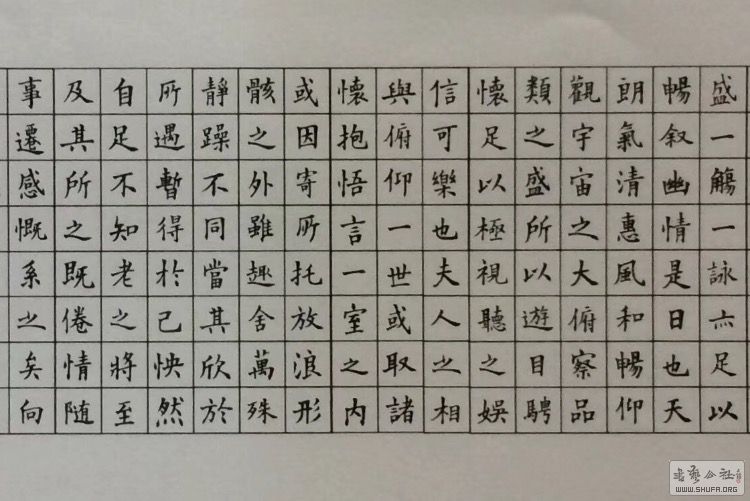 盛一觴一詠亦足以
暢叙幽情是日也天
朗氣清惠風和暢仰
觀宇宙之大俯察品
類之盛所以遊目騁
懷足以極視聽之娛
信可樂也夫人之相
與俯仰一世或取諸
懷抱悟言一室之內
或因寄所托放浪形
骸之外雖趣舍萬殊
靜躁不同當其欣於
所遇暫得於己怏然
自足不知老之將至
及其所之既倦情随
事遷感慨系之矣向
書藝公社
WWW.SHUFA.ORG